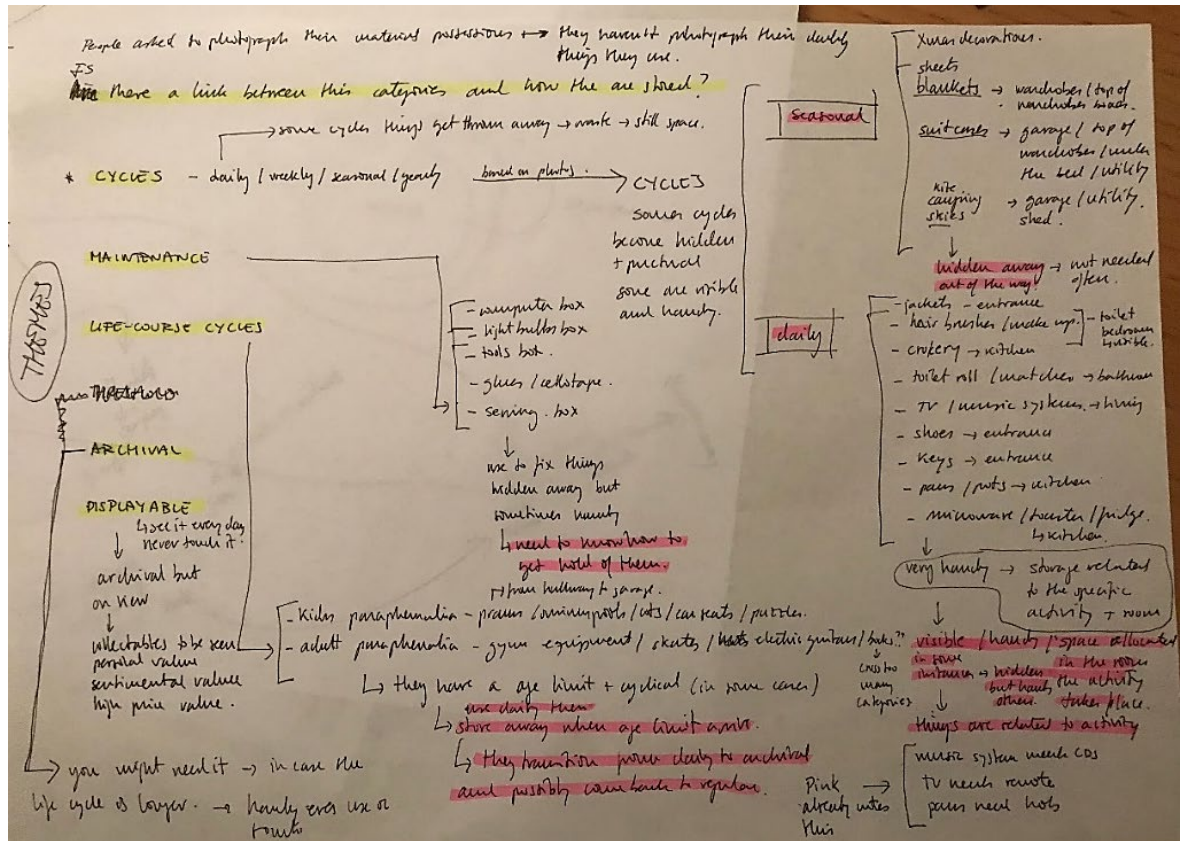 People asked to photograph their material possessions → they haven't photograph their daily
things they use.
IS
there a link between this categories and how the are stored?
→ some cycles things get thrown away → waste → still space.
* CYCLES - daily / weekly / seasonal / yearly based on photos. → CYCLES
some cycles
become hidden
+
some are visible
and handy.
MAINTENANCE
LIFE-COURSE CYCLES
THEMES
THRESHOLD
ARCHIVAL
DISPLAYABLE
↳ see it every day
never touch it.
↓
archival but
on view
↓
collectables to be seen
personal value
sentimental value
high price value.
- computer box
- light bulbs box
- tools box.
- glues / cellotape.
- sewing box
↓
use to fix things
hidden away but
sometimes handy
↳ need to know how to
get hold of them.
↦ from hallway to garage.
- Kids paraphernalia - prams / / cots / car seats / puzzles.
- adult paraphenalia - gym equipment / skates / electric guitars / books??
↓
cross too
many
categories
↳ they have a age limit + cyclical (in some cases)
use daily then
↳ store away when age limit arrive.
↳ they transition from daily to archival
and possibly come back to regular.
→ you might need it → in case the
life cycle is longer. → handy ever use or
seasonal
Xmas decorations.
- sheets
blankets → wardrobes / top of
wardrobes boxes.
suitcases → garage / top of
wardrobes / under
the bed / utility
kite
camping → garage / utility.
skies shed.
↓
hidden away → not needed
out of the way! often.
daily
- jackets - entrance
- hair brushes / make up. - toilet
bedroom
↳ visible.
- crokery → kitchen
- toilet roll / matches → bathroom
- TV / music systems. → living
- shoes → entrance
- keys → entrance
- pans / pots → kitchen
- microwave / toaster / fridge.
↳ kitchen.
↓
very handy → storage related
to the specific
activity + room
↓
visible / handy / space allocated
in some in the room
instances → hidden the activity
but handy takes place.
others.
↓
things are related to activity
music system needs CDs
TV needs remote
pans need hobs
Pink →
already
this